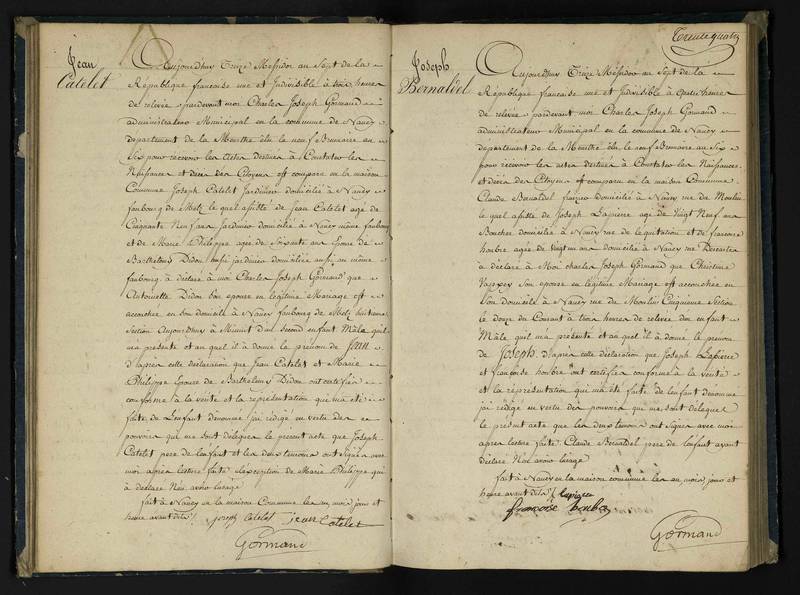 Jean
Catelet
Aujourdhuy Treize Messidor an Sept de la
République francaise une et Indivisible à trois heures
de relevée pardevant moi Charles Joseph Gormand
administrateur Municipal en la commune de Nancy
departement de la Meurthe élu le neuf Brumaire an
Six pour recevoir les actes destinés à Constater les
Naissances et décès des Citoyens est comparu en la maison
Commune Joseph Catelet Jardinier domicilié à Nancy
faubourg de Metz le quel assisté de Jean Catelet agé de
Cinquante Neuf ans Jardinier domicilié à Nancy même faubourg
et de Marie Philippe agée de Soixante ans Epouse de
Barthelemy Didon aussi jardinier domiciliée aussi au même
faubourg, a déclaré à moi Charles Joseph Gormand que
Antoinette Didon son épouse en légitime Mariage est
accouchée en son domicile à Nancy faubourg de Metz huitieme
Section Aujourdhuy à Minuit d'un second enfant Mâle quil
ma présenté et au quel il à donné le prénom de Jean
d'après cette déclaration que Jean Catelet et Marie
Philippe Epouse de Barthelemy Didon ont certifiée
conforme à la verité et la représentation qui ma été
faite de L'enfant dénommé j'ai rédigé en vertu des
pouvoirs qui me sont délégués le présent acte que Joseph
Catelet pere de l'enfant et les deux temoins ont Signés avec
moi après lecture faite à lexception de Marie Philippe qui
à déclaré Nen avoir lusage
fait à Nancy en la maison Commune les an, mois jours et
heure avant dits
joseph Catelet jean Catelet
Gormand
Trente quatre
Joseph
Bernaldel
Aujourdhuy Treize Messidor an Sept de la
République francaise une et Indivisible à quatre heures
de relevée pardevant moi Charles Joseph Gormand
administrateur Municipal en la commune de Nancy
departement de la Meurthe élu le neuf Brumaire an Six
pour recevoir les actes destinés à Constater les Naissances
et décès des Citoyens est comparu en la maison Commune
Claude Bernaldel domicilié à Nancy rue du Moulin
le quel assisté de Joseph Lapierre agé de Vingt Neuf ans
Boucher domicilié à Nancy rue de et de francoise
houbre agée de vingt un ans domiciliée à Nancy rue
a déclaré à Moi Charles Joseph Gormand que Christine
son épouse en légitime Mariage est accouchée en
Son domicile à Nancy rue du Moulin Cinquieme Section
le douze du Courant à trois heures de relevée dun enfant
Mâle quil ma présenté et au quel il à donné le prénom
de Joseph. d'après cette déclaration que Joseph Lapierre
et francoise houbre ont certifiée conforme à la verité
et la représentation qui ma été faite de lenfant dénommé
jai redigé en vertu des pouvoirs qui me sont délegués
le présent acte que les deux temoins ont Signés avec moi
apres lecture faite Claude Bernaldel pere de lenfant ayant
déclaré Nen avoir lusage
fait à Nancy en la maison commune les an, mois jours et
heure avant dits lapierre
francoise houbre
Gormand